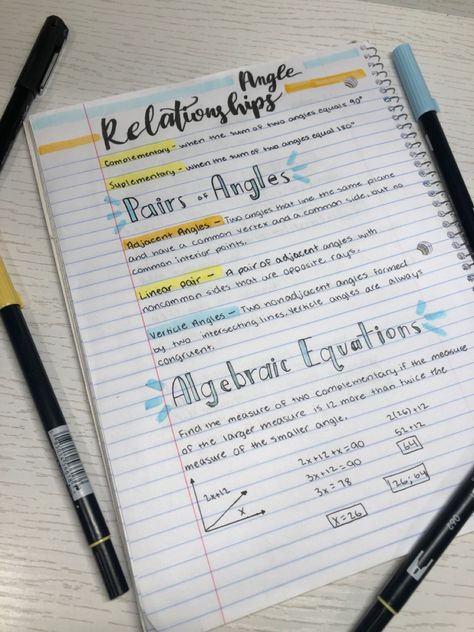 Angle
Relationships
Complementary - when the sum of two angles equals 90°
Suplementary - when the sum of two angles equal 180°
Pairs of Angles
Adjacent Angles - Two angles that line the same plane
and have a common vertex and a common side, but no
common interior points.
Linear pair - A pair of adjacent angles with
noncommon sides that are opposite rays.
Verticle Angles - Two nonadjacent angles formed
by two intersecting lines. Verticle angles are always
congruent.
Algebraic Equations
Find the measure of two complementary, if the measure
of the larger measure is 12 more than twice the
measure of the smaller angle.
2x+12
x
2x+12+x=90
3x+12=90
3x=78
x=26
2(26)+12
52+12
64
26;64